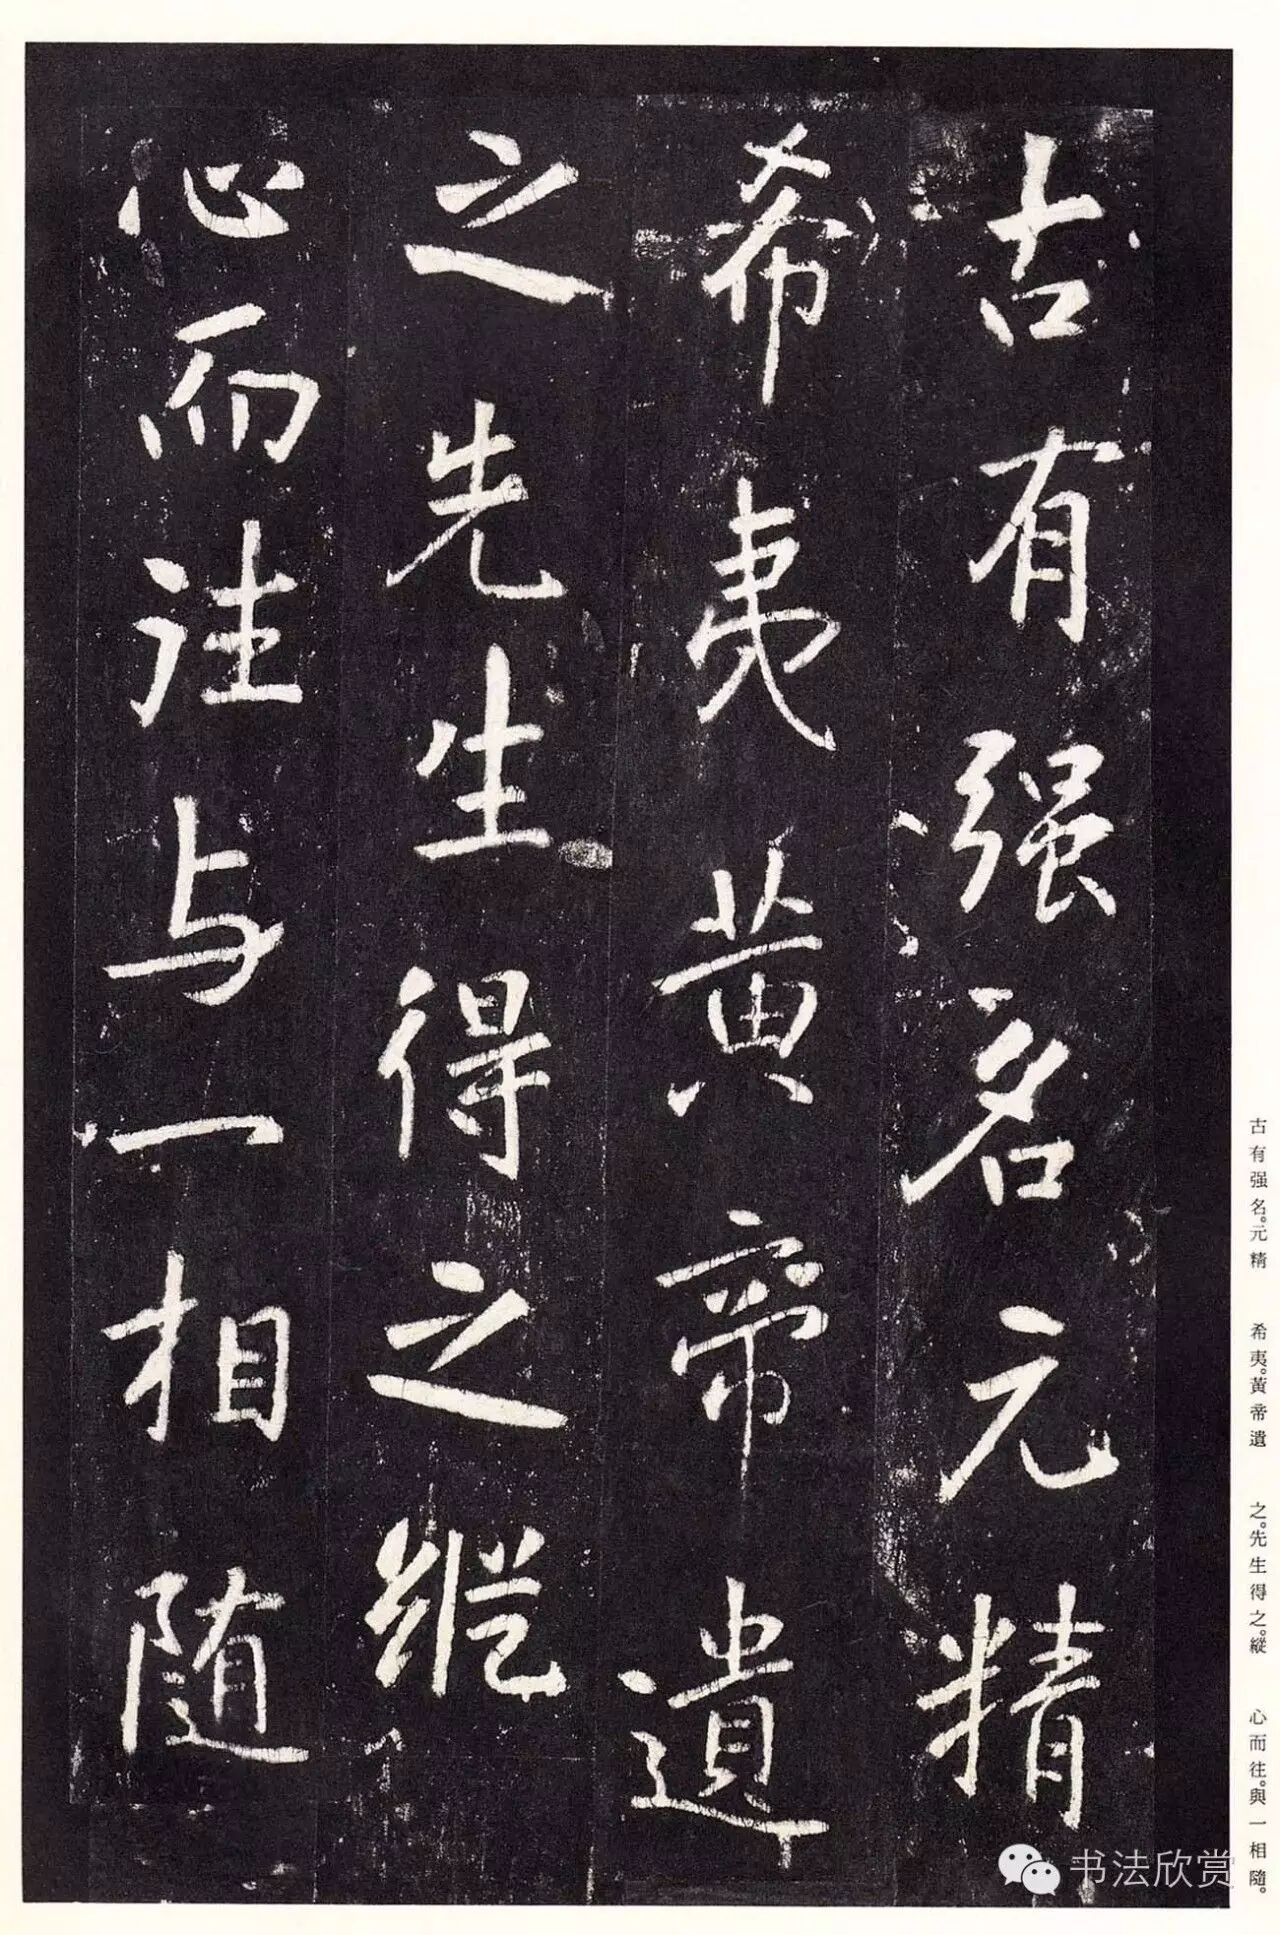 古有强名元精
希夷黄帝遺
之先生得之縱
心而往与一相随
古有强名。元精　希夷。黃帝遺　之。先生得之。縱　心而往。與一相隨。
书法欣赏